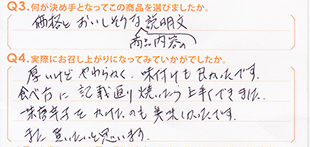 Q3.何が決め手となってこの商品を選びましたか。
価格とおいしそうな説明文
商品内容の
Q4.実際にお召し上がりになってみていかがでしたか。
厚いけどやわらかく、味付けも良かったです。
食べ方に記載通り焼いたら上手くできました。
唐辛子をかけたのも美味しかったです。
また買いたいと思います。